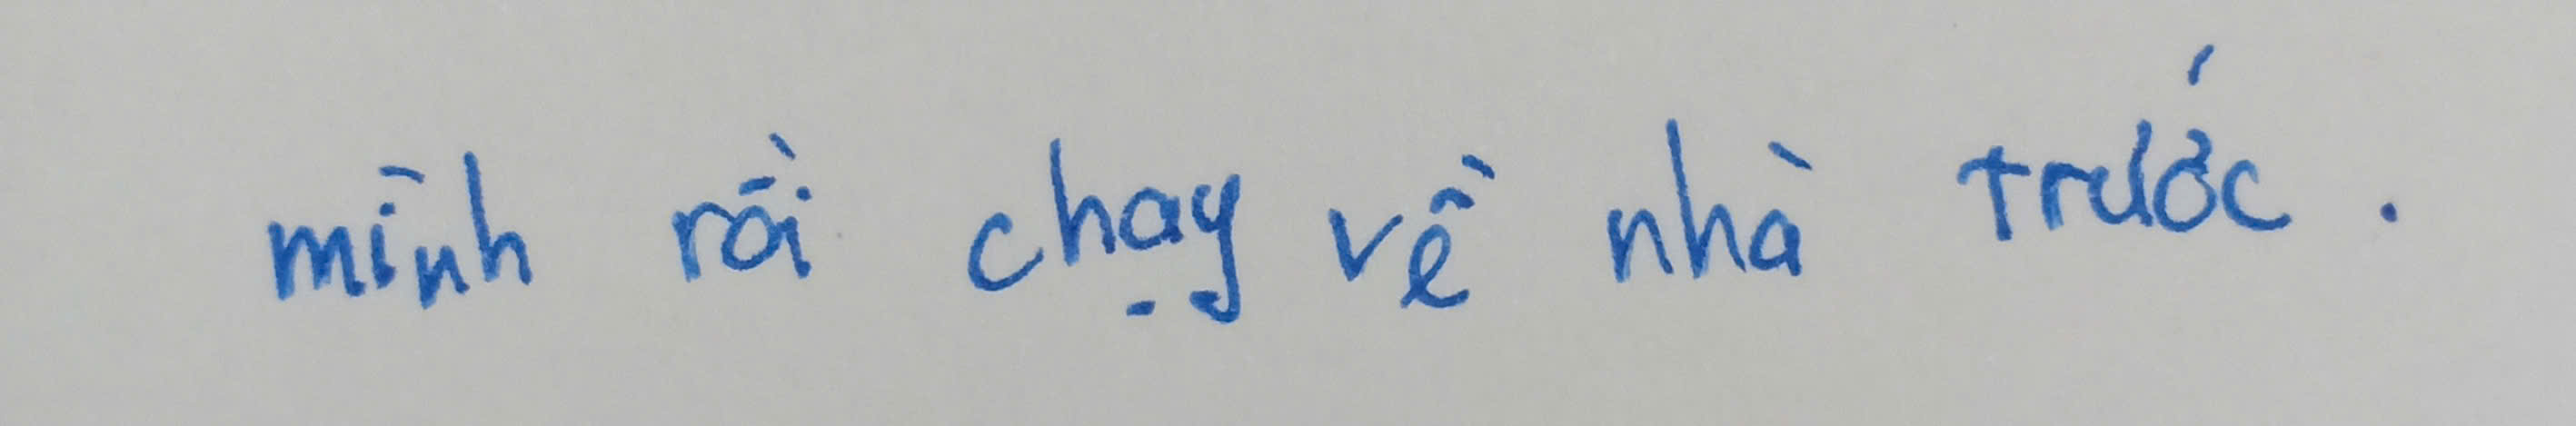 mình rồi chạy về nhà trước.